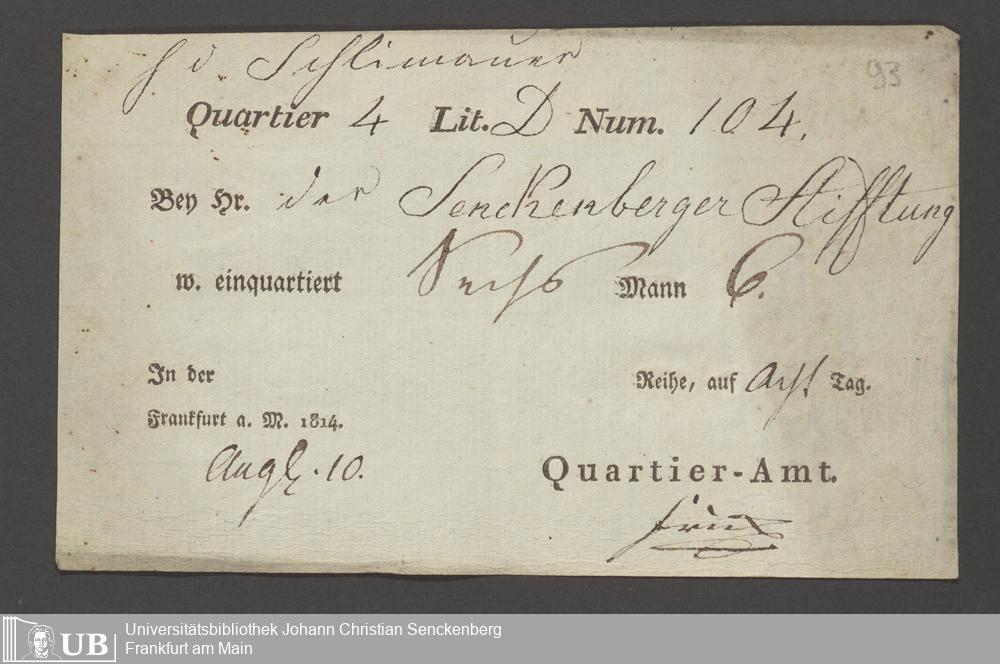 Schlimauer
93
Quartier 4 Lit. D Num. 104.
Bey Hr. der Senckenberger Stifftung
w. einquartiert Sechs Mann 6.
In der Reihe, auf Acht Tag.
Frankfurt a. M. 1814.
Augt. 10.
Quartier-Amt.
UB Universitätsbibliothek Johann Christian Senckenberg
Frankfurt am Main